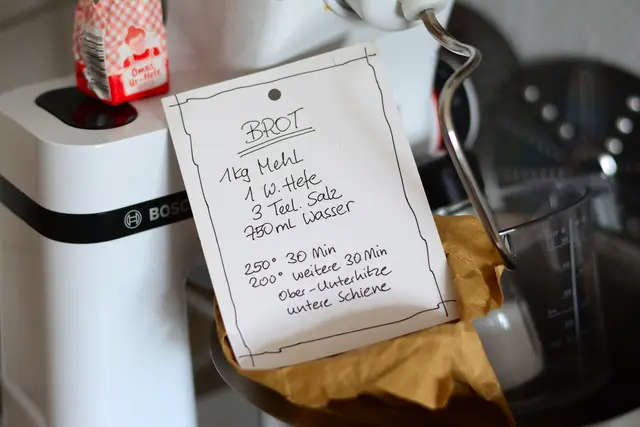 Omas
Ur-Hefe
BOSC
BROT
1kg Mehl
1 W. Hefe
3 Teel. Salz
750ml Wasser
250° 30 Min
200° weitere 30 Min
Ober-Unterhitze
untere Schiene